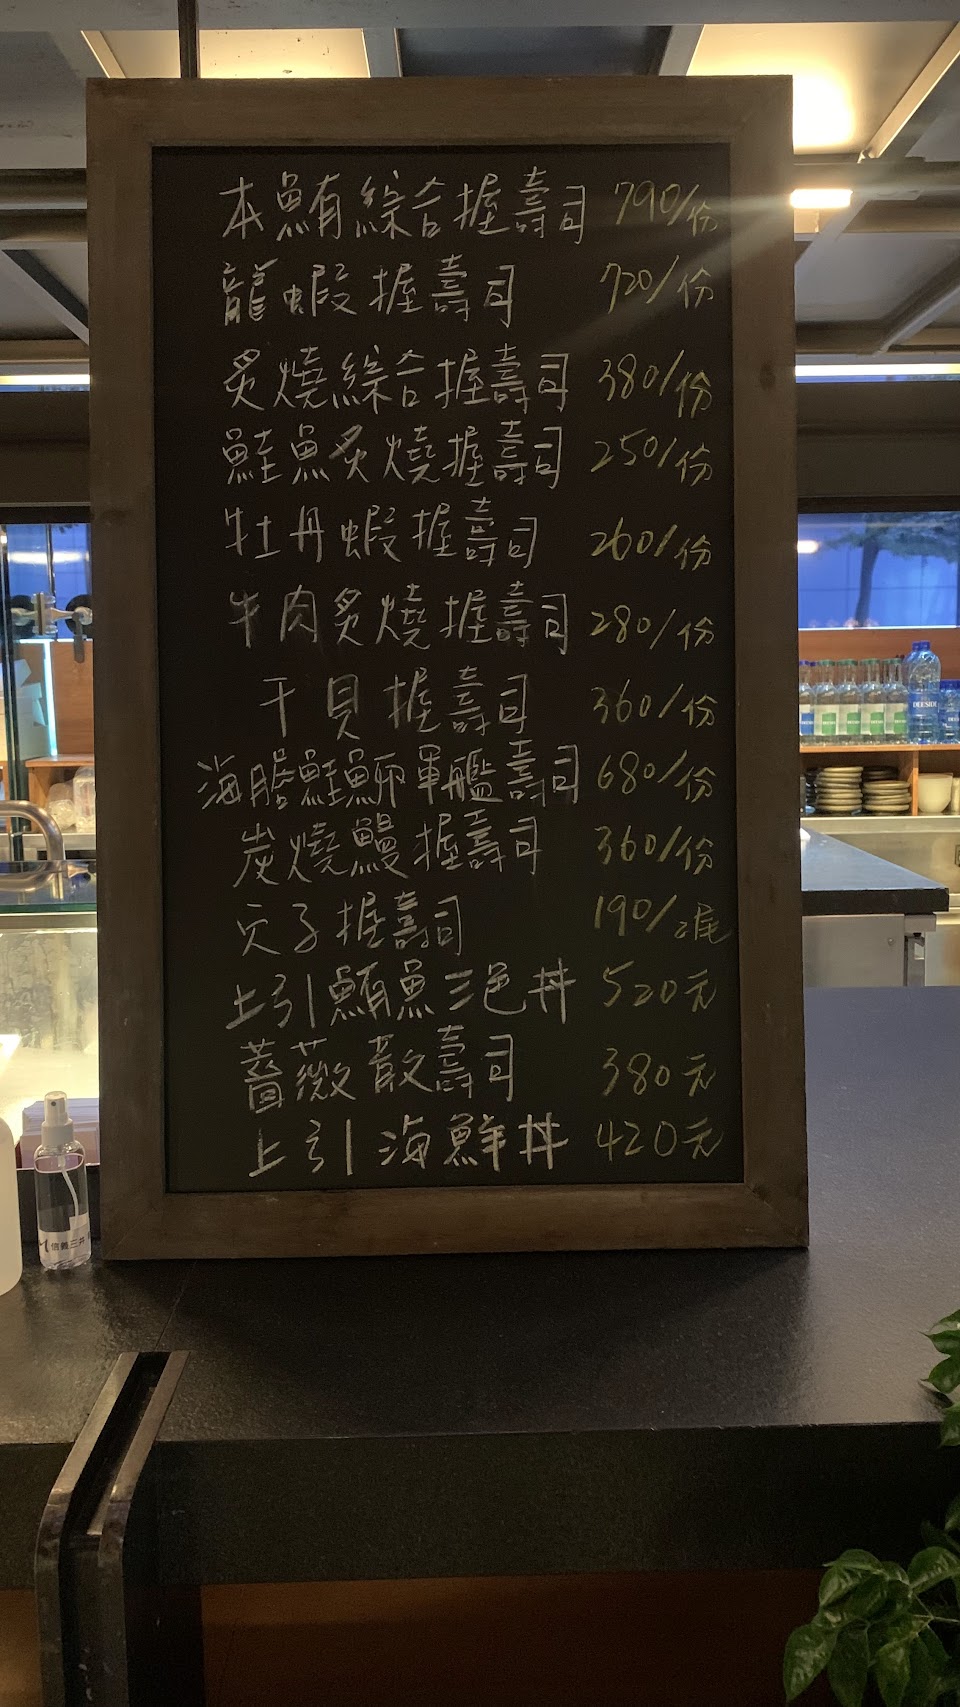 本鮪綜合握壽司 790/份
龍蝦握壽司 720/份
炙燒綜合握壽司 380/份
鮭魚炙燒握壽司 250/份
牡丹蝦握壽司 260/份
牛肉炙燒握壽司 280/份
干貝握壽司 360/份
海膽鮭魚卵軍艦壽司 680/份
炭燒鰻握壽司 360/份
穴子握壽司 190/2尾
上引鮪魚三色丼 520元
薔薇散壽司 380元
上引海鮮丼 420元
DEESIDE
信義三井